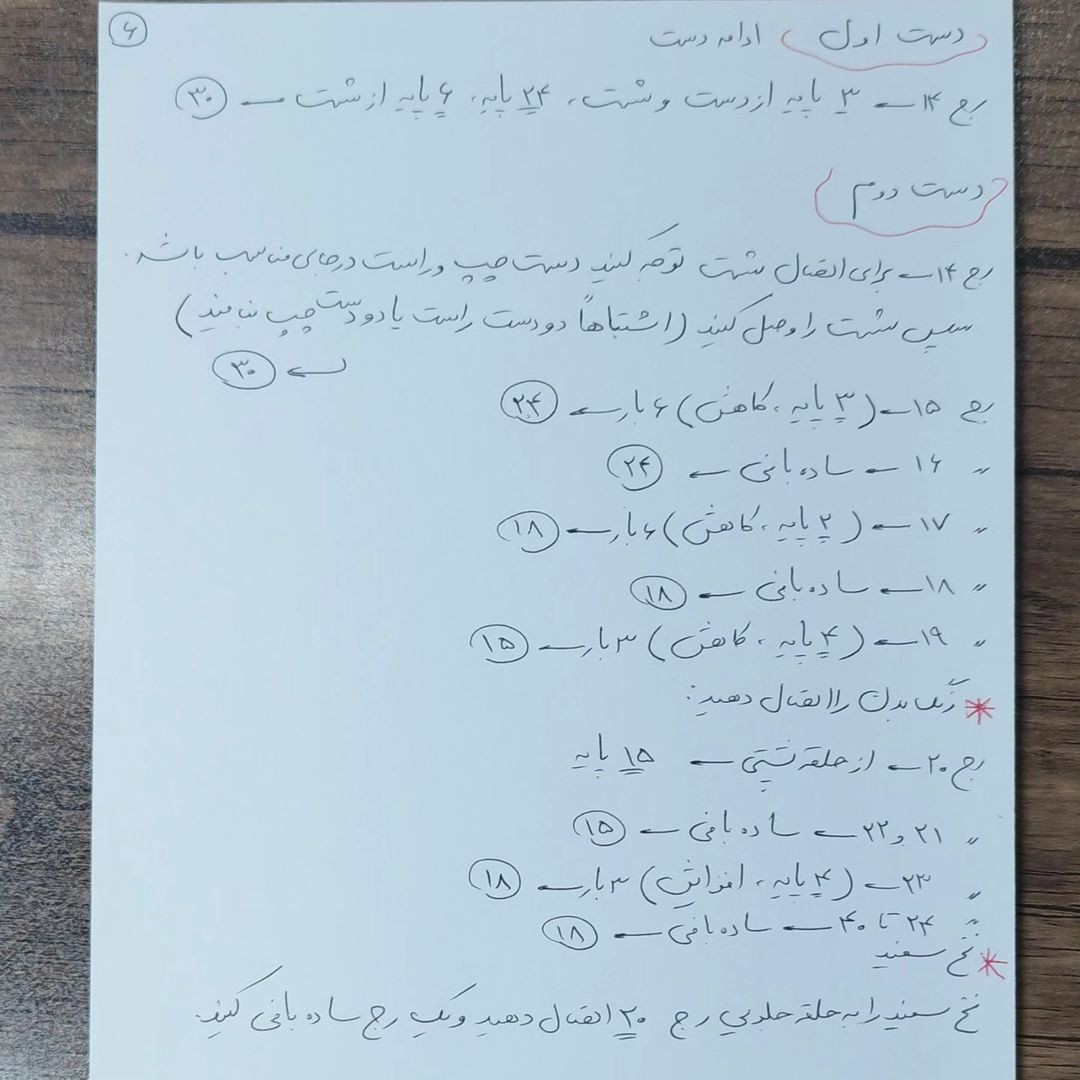 ۶
دست اول ادامه دست
رج ۱۴← ۳ پایه از دست و شست، ۲۴ پایه، ۶ پایه از شست ← ۳۰
دست دوم
رج ۱۴← برای اتصال شست توجه کنید دست چپ و راست در جای مناسب باشد.
سپس شست را وصل کنید (اشتباهاً دو دست راست یا دو دست چپ نبافید)
← ۳۰
رج ۱۵← (۳ پایه، کاهش) ۶ بار← ۲۴
〃 ۱۶← ساده بافی ← ۲۴
〃 ۱۷← (۲ پایه، کاهش) ۶ بار← ۱۸
〃 ۱۸← ساده بافی ← ۱۸
〃 ۱۹← (۴ پایه، کاهش) ۳ بار← ۱۵
* رنگ بدن را اتصال دهید:
رج ۲۰← از حلقه پشتی ← ۱۵ پایه
〃 ۲۱ و ۲۲← ساده بافی ← ۱۵
〃 ۲۳← (۴ پایه، افزایش) ۳ بار← ۱۸
〃 ۲۴ تا ۴۰← ساده بافی ← ۱۸
* نخ سفید
نخ سفید را به حلقه جلویی رج ۲۰ اتصال دهید و یک رج ساده بافی کنید.